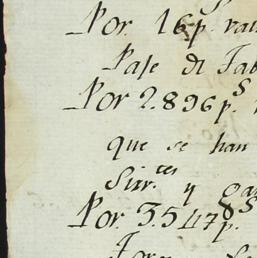 Por. 16 p.
Pase di
Por 2.896 p.s
que se han
Sirr.tes y
Por. 3.547 p.s